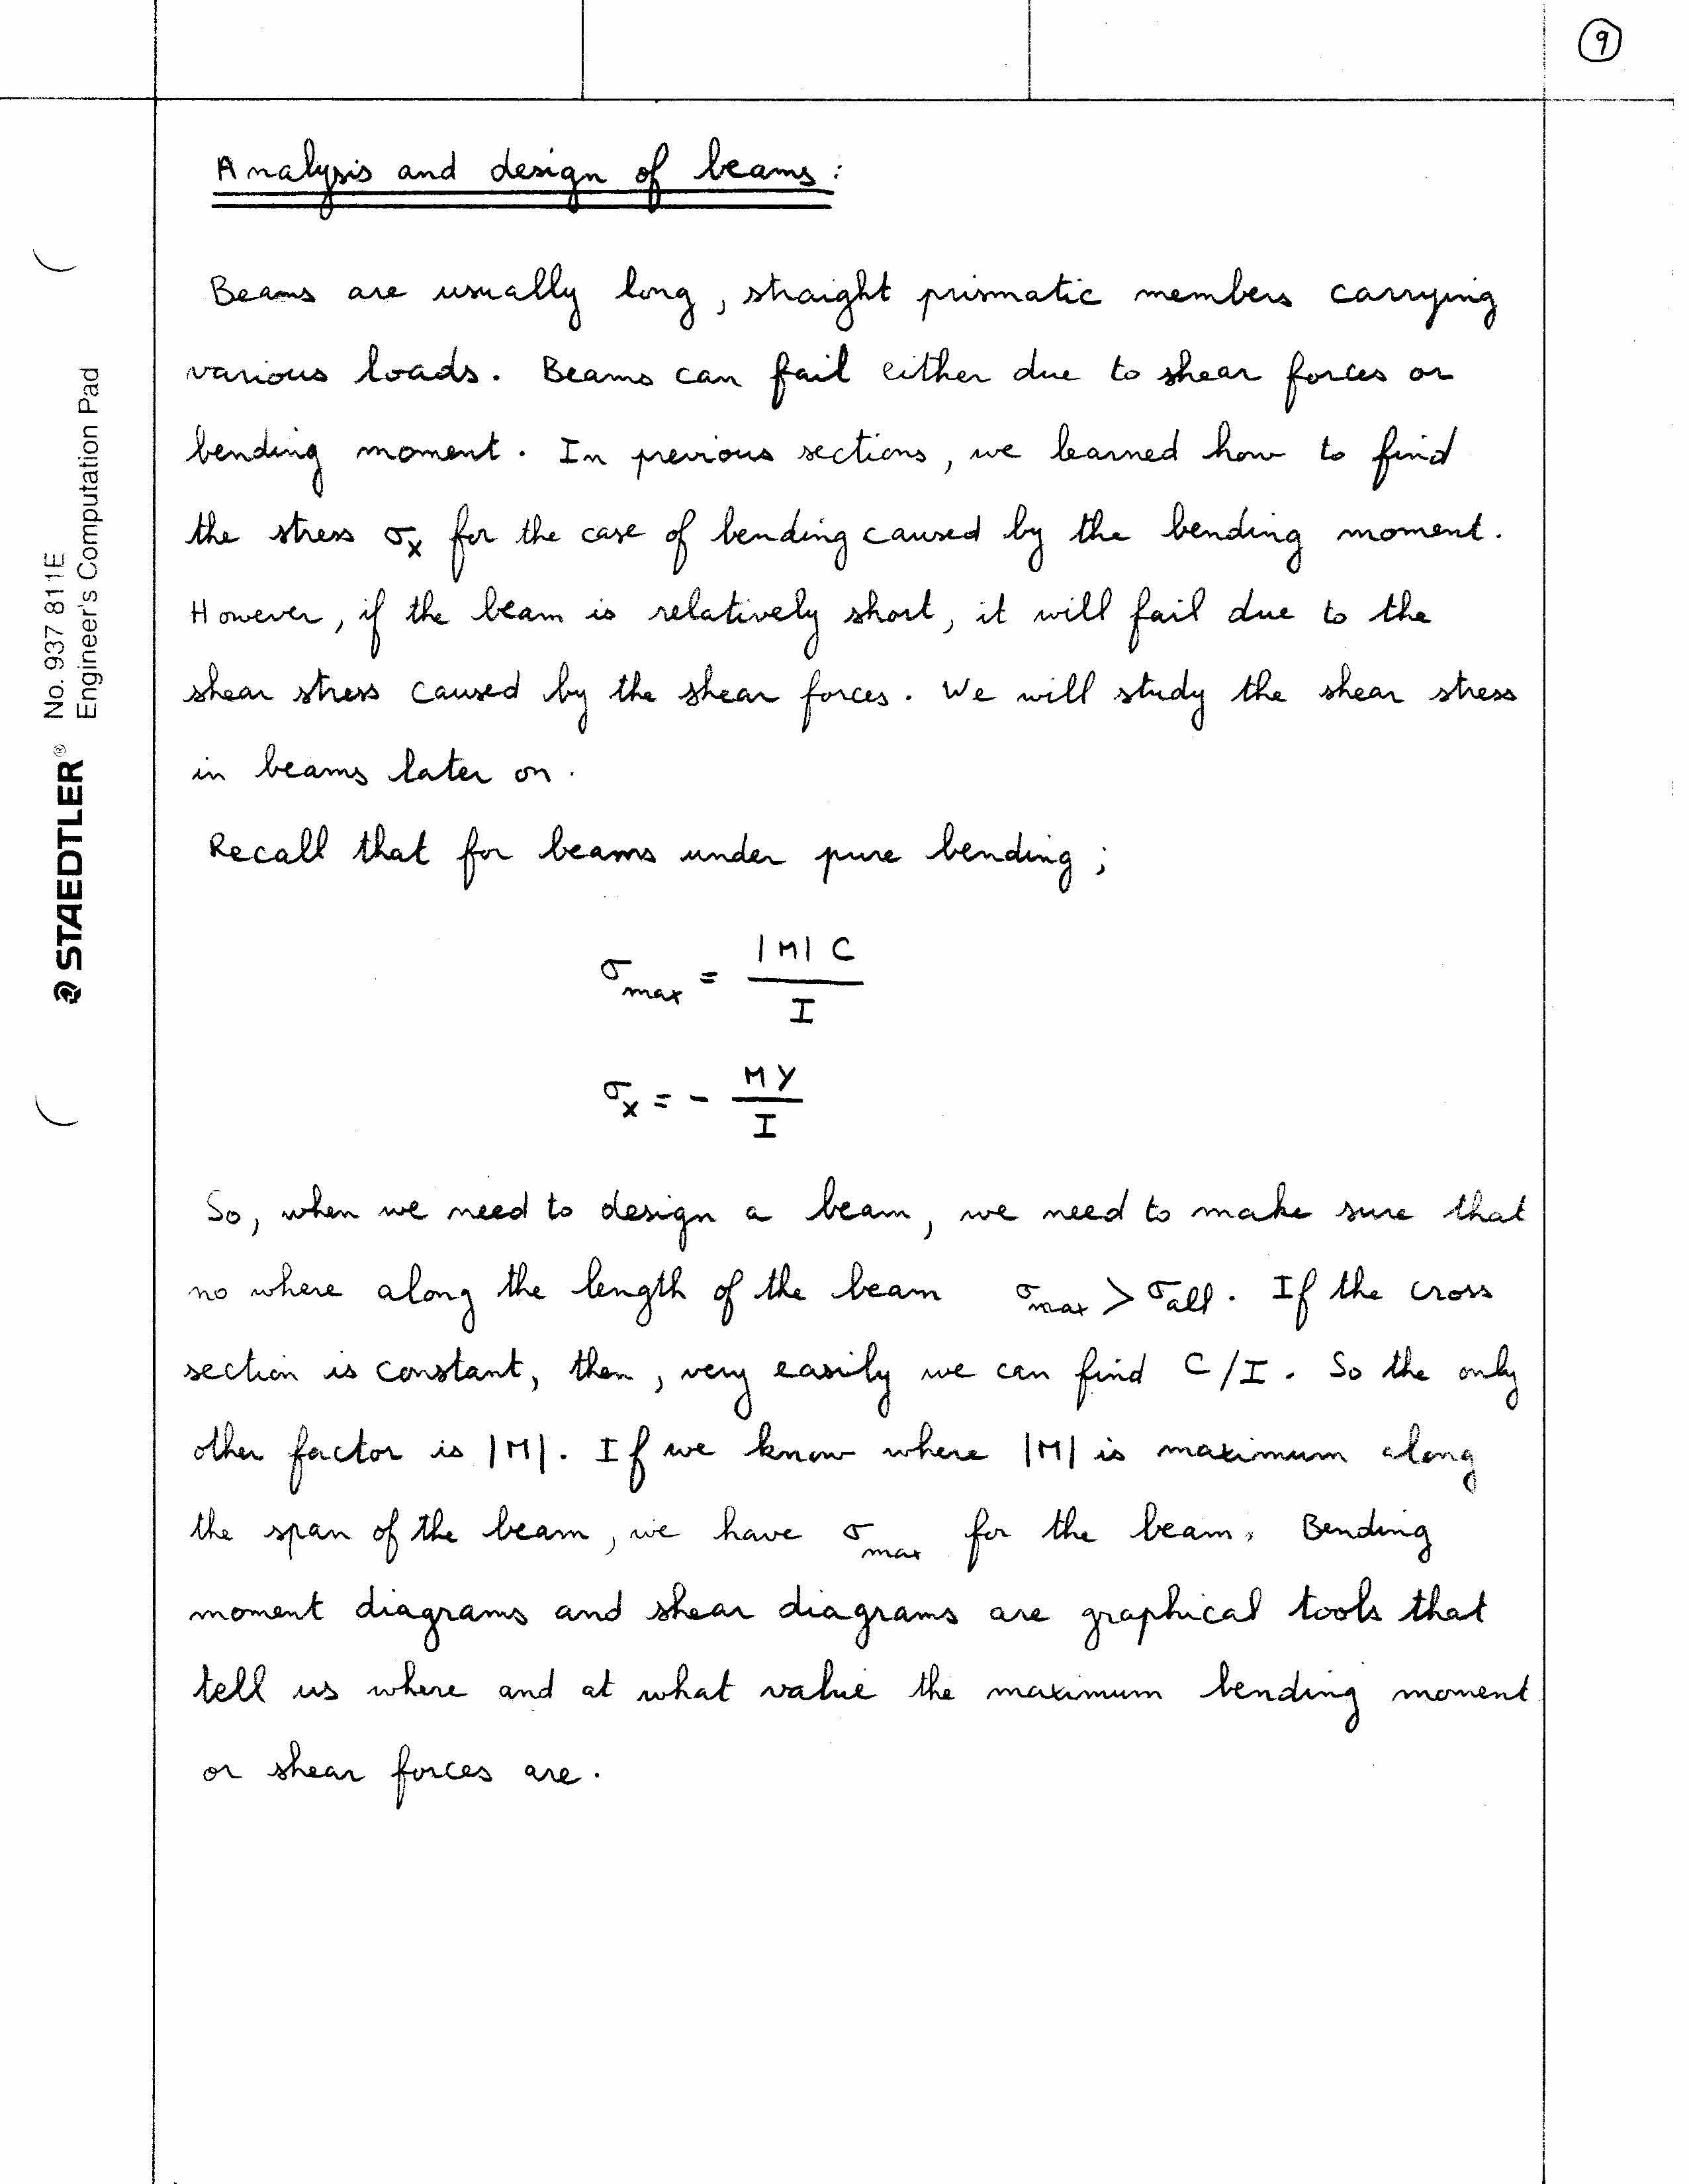 9
Analysis and design of beams:
Beams are usually long, straight prismatic members carrying
various loads. Beams can fail either due to shear forces or
bending moment. In previous sections, we learned how to find
the stress σx for the case of bending caused by the bending moment.
However, if the beam is relatively short, it will fail due to the
shear stress caused by the shear forces. We will study the shear stress
in beams later on.
Recall that for beams under pure bending;
σmax = |M| C / I
σx = - M y / I
So, when we need to design a beam, we need to make sure that
no where along the length of the beam σmax > σall. If the cross
section is constant, then, very easily we can find C/I. So the only
other factor is |M|. If we know where |M| is maximum along
the span of the beam, we have σmax for the beam. Bending
moment diagrams and shear diagrams are graphical tools that
tell us where and at what value the maximum bending moment
or shear forces are.
STAEDTLER® No. 937 811E
Engineer's Computation Pad